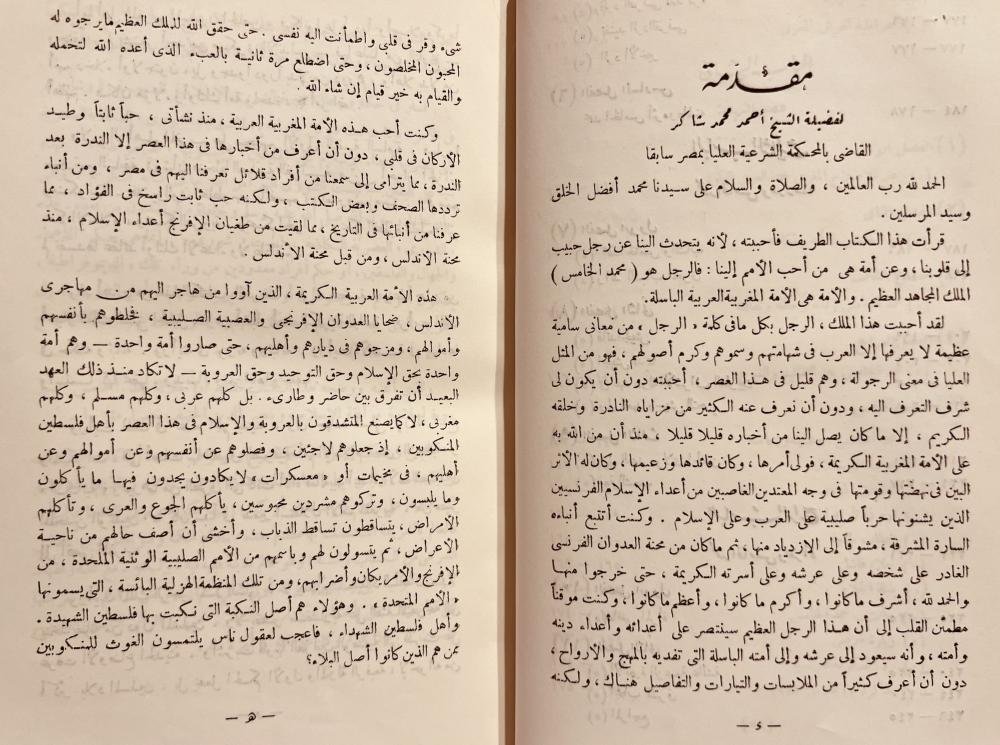 مقدّمة
لفضيلة الشيخ أحمد محمد شاكر
القاضى بالمحكمة الشرعية العليا بمصر سابقا
الحمد لله رب العالمين ، والصلاة والسلام على سيدنا محمد أفضل الخلق
وسيد المرسلين .
قرأت هذا الكتاب الطريف فأحببته ، لأنه يتحدث الينا عن رجل حبيب
إلى قلوبنا ، وعن أمة هى من أحب الأمم إلينا : فالرجل هو ( محمد الخامس )
الملك المجاهد العظيم . والأمة هى الأمة المغربية العربية الباسلة .
لقد أحببت هذا الملك ، الرجل بكل ما فى كلمة « الرجل » من معانى سامية
عظيمة لا يعرفها إلا العرب فى شهامتهم وسموهم وكرم أصولهم ، فهو من المثل
العليا فى معنى الرجولة ، وهم قليل فى هذا العصر ، أحببته دون أن يكون لى
شرف التعرف اليه ، ودون أن نعرف عنه الكثير من مزاياه النادرة وخلقه
الكريم ، إلا ما كان يصل الينا من أخباره قليلا قليلا ، منذ أن من الله به
على الأمة المغربية الكريمة ، فولى أمرها ، وكان قائدها وزعيمها ، وكان له الأثر
البين فى نهضتها وقومتها فى وجه المعتدين الغاصبين من أعداء الإسلام الفرنسيين
الذين يشنونها حرباً صليبية على العرب وعلى الإسلام . وكنت أتتبع أنباءه
السارة المشرفة ، مشوقاً إلى الازدياد منها ، ثم ما كان من محنة العدوان الفرنسى
الغادر على شخصه وعلى عرشه وعلى أسرته الكريمة ، حتى خرجوا منها
والحمد لله ، أشرف ما كانوا ، وأكرم ما كانوا ، وأعظم ما كانوا ، وكنت موقناً
مطمئن القلب إلى أن هذا الرجل العظيم سينتصر على أعدائه وأعداء دينه
وأمته ، وأنه سيعود إلى عرشه وإلى أمته الباسلة التى تفديه بالمهج والأرواح ،
دون أن أعرف كثيراً من الملابسات والتيارات والتفاصيل هناك ، ولكنه
— د —
شىء وقر فى قلبى واطمأنت اليه نفسى . حتى حقق الله للملك العظيم ما يرجوه له
المحبون المخلصون ، وحتى اضطلع مرة ثانية بالعبء الذى أعده الله لتحمله
والقيام به خير قيام إن شاء الله .
وكنت أحب هذه الأمة المغربية العربية ، منذ نشأتى ، حباً ثابتاً وطيد
الأركان فى قلبى ، دون أن أعرف من أخبارها فى هذا العصر إلا الندرة بعد
الندرة ، مما يترامى إلى سمعنا من أفراد قلائل تعرفنا اليهم فى مصر ، ومن أنباء
ترددها الصحف وبعض الكتب ، ولكنه حب ثابت راسخ فى الفؤاد ، مما
عرفنا من أنبائها فى التاريخ ، مما لقيت من طغيان الإفرنج أعداء الإسلام ، منذ
محنة الأندلس ، ومن قبل محنة الأندلس .
هذه الأمة العربية الكريمة ، الذين آووا من هاجر اليهم من مهاجرى
الأندلس ، ضحايا العدوان الإفرنجى والعصبية الصليبية ، فخلطوهم بأنفسهم
وأموالهم ، ومزجوهم فى ديارهم وأهليهم ، حتى صاروا أمة واحدة — وهم أمة
واحدة بحق الإسلام وحق التوحيد وحق العروبة — لا تكاد منذ ذلك العهد
البعيد أن تفرق بين حاضر وطارىء . بل كلهم عربى ، وكلهم مسلم ، وكلهم
مغربى ، لا كما يصنع المتشدقون بالعروبة والإسلام فى هذا العصر بأهل فلسطين
المنكوبين ، إذ جعلوهم لاجئين ، وفصلوهم عن أنفسهم وعن أموالهم وعن
أهليهم . فى مخيمات أو « معسكرات » لا يكادون يجدون فيها ما يأكلون
وما يلبسون ، وتركوهم مشردين محبوسين ، يأكلهم الجوع والعرى ، وتأكلهم
الأمراض ، يتساقطون تساقط الذباب ، وأخشى أن أصف حالهم من ناحية
الأعراض ، ثم يتسولون لهم وباسمهم من الأمم الصليبية الوثنية الملحدة ، من
الإفرنج والأمريكان وأضرابهم ، ومن تلك المنظمة الهزلية البائسة ، التى يسمونها
« الأمم المتحدة » . وهؤلاء هم أصل النكبة التى نكبت بها فلسطين الشهيدة .
وأهل فلسطين الشهداء ، فاعجب لعقول ناس يلتمسون الغوث للمنكوبين
ممن هم الذين كانوا أصل البلاء ؟
— ه —